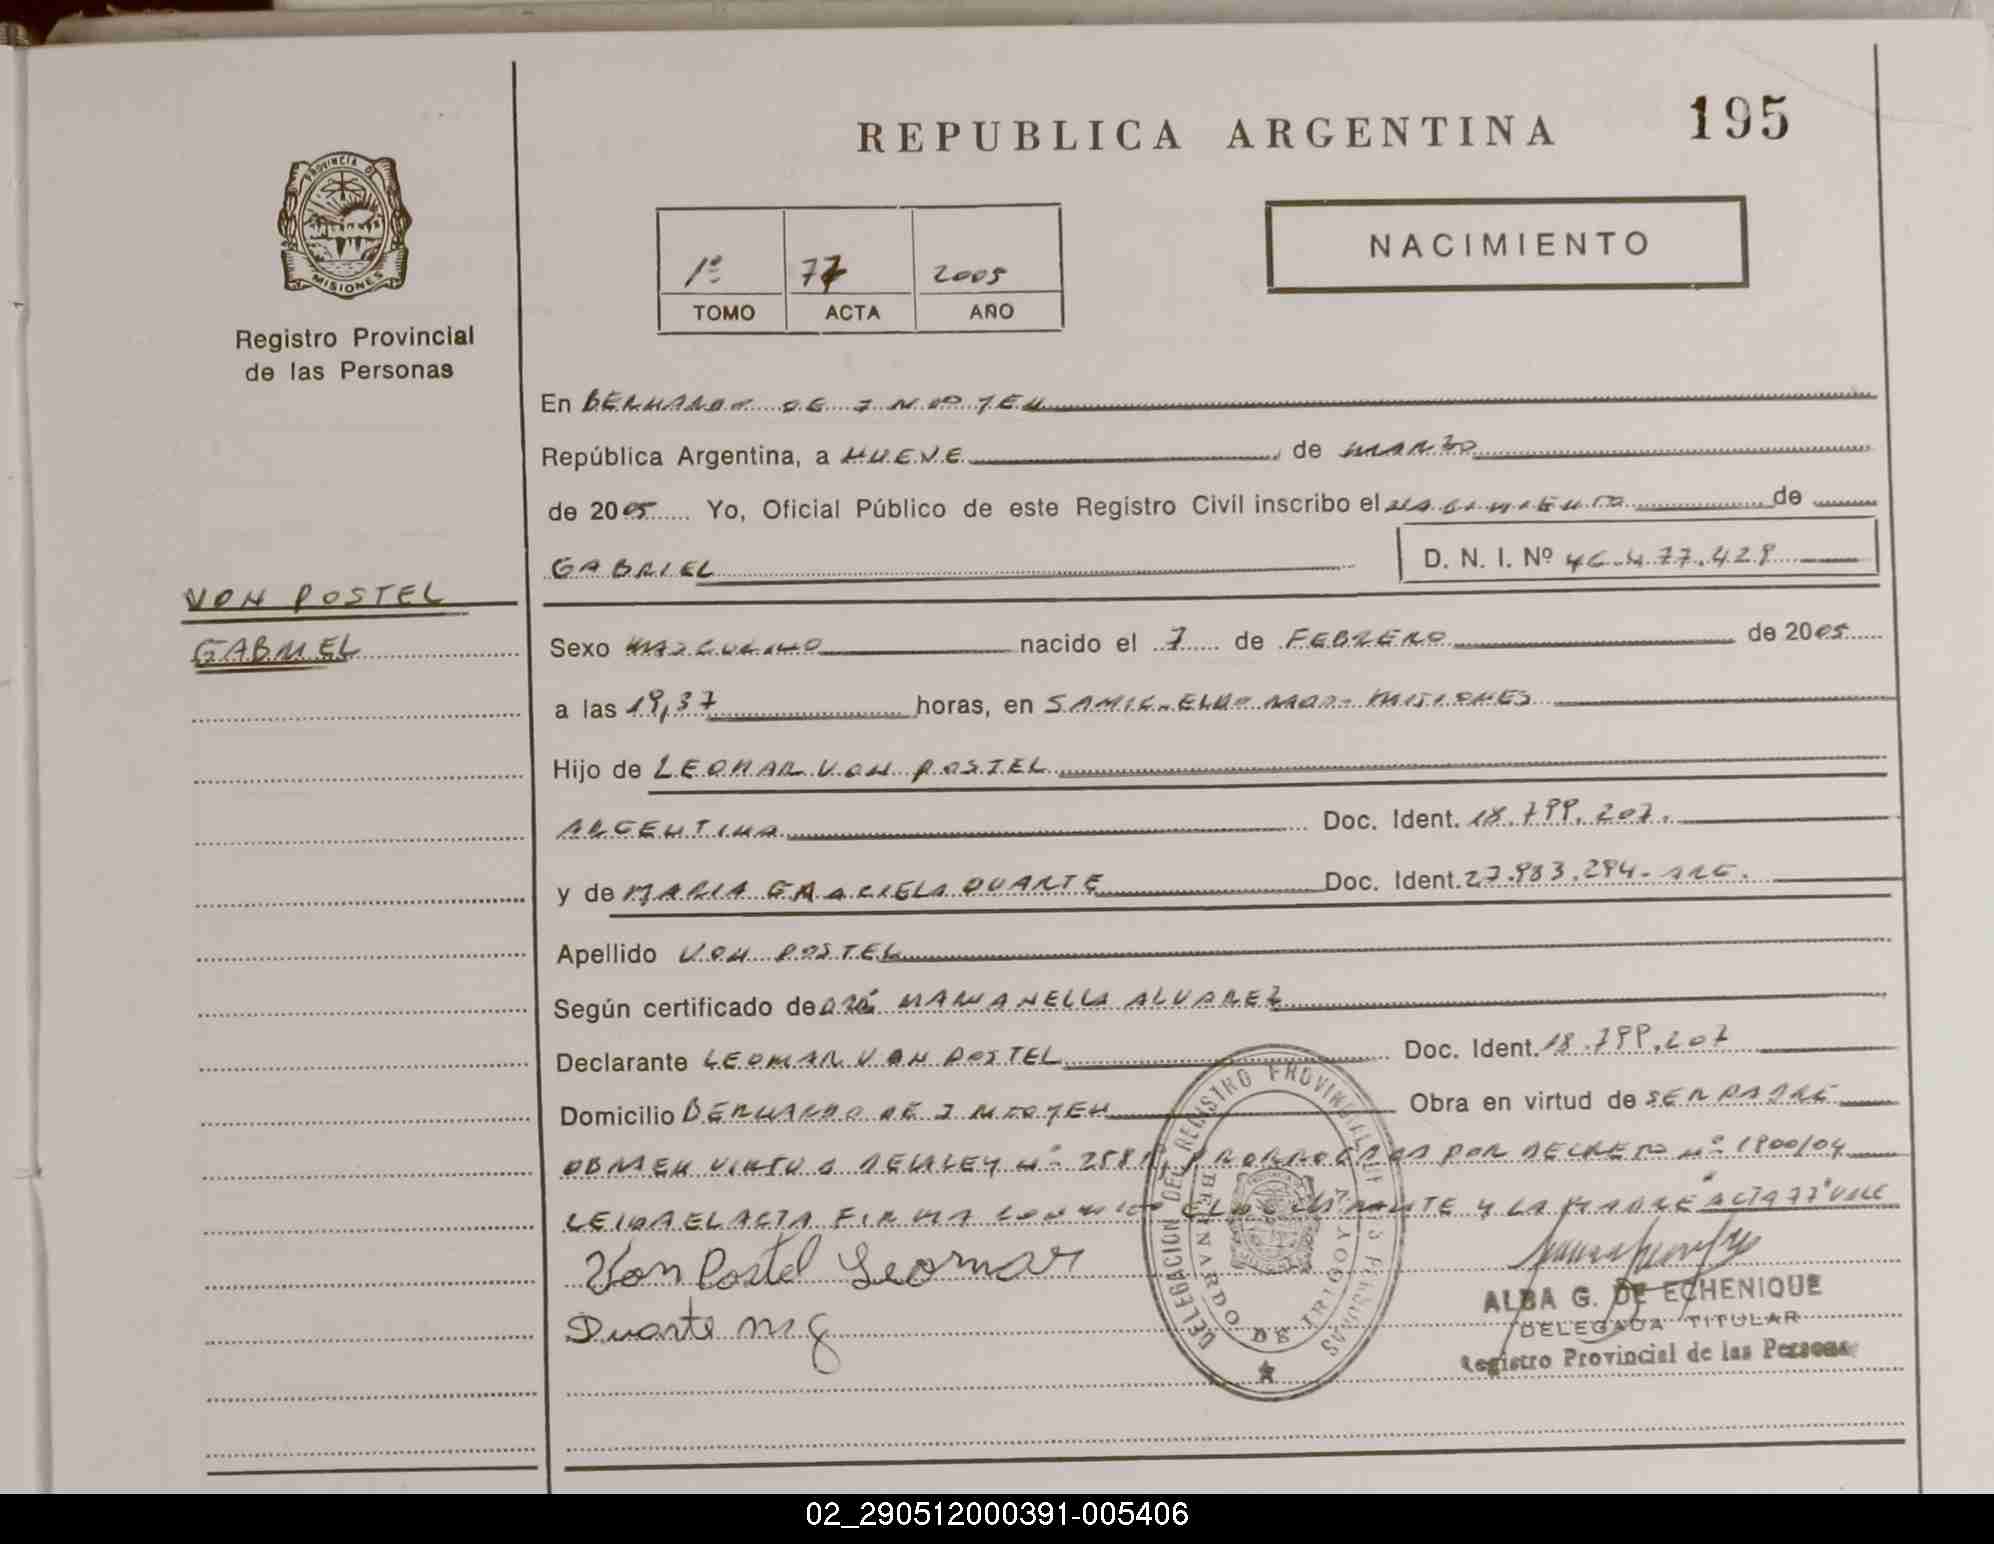 REPUBLICA ARGENTINA
195
PROVINCIA DE
MISIONES
Registro Provincial
de las Personas
1º 77 2005
TOMO ACTA AÑO
NACIMIENTO
En BERNARDO DE IRIGOYEN
República Argentina, a NUEVE de MARZO
de 2005 Yo, Oficial Público de este Registro Civil inscribo el NACIMIENTO de
GABRIEL D. N. I. Nº 46.477.429
VON POSTEL
GABRIEL
Sexo MASCULINO nacido el 7 de FEBRERO de 2005
a las 19,37 horas, en SAMIC. ELDORADO- MISIONES
Hijo de LEOMAR VON POSTEL
ARGENTINA Doc. Ident. 18.799.207.
y de MARIA GRACIELA DUARTE Doc. Ident. 27.983.294- ARG.
Apellido VON POSTEL
Según certificado de DRA MARIANELLA ALVAREZ
Declarante LEOMAR VON POSTEL Doc. Ident. 18.799.207
Domicilio BERNARDO DE IRIGOYEN Obra en virtud de SER PADRE
OBRA EN VIRTUD DE LA LEY Nº PRORROGADA POR DECRETO Nº 1900/04
LEIDA EL ACTA FIRMA CONMIGO EL DECLARANTE Y LA MADRE "ACTA 77" VALE
Von Postel Leomar
Duarte M G
DELEGACION DEL REGISTRO PROVINCIAL DE LAS PERSONAS
BERNARDO DE IRIGOYEN
ALBA G. DE ECHENIQUE
DELEGADA TITULAR
Registro Provincial de las Personas
02_290512000391-005406